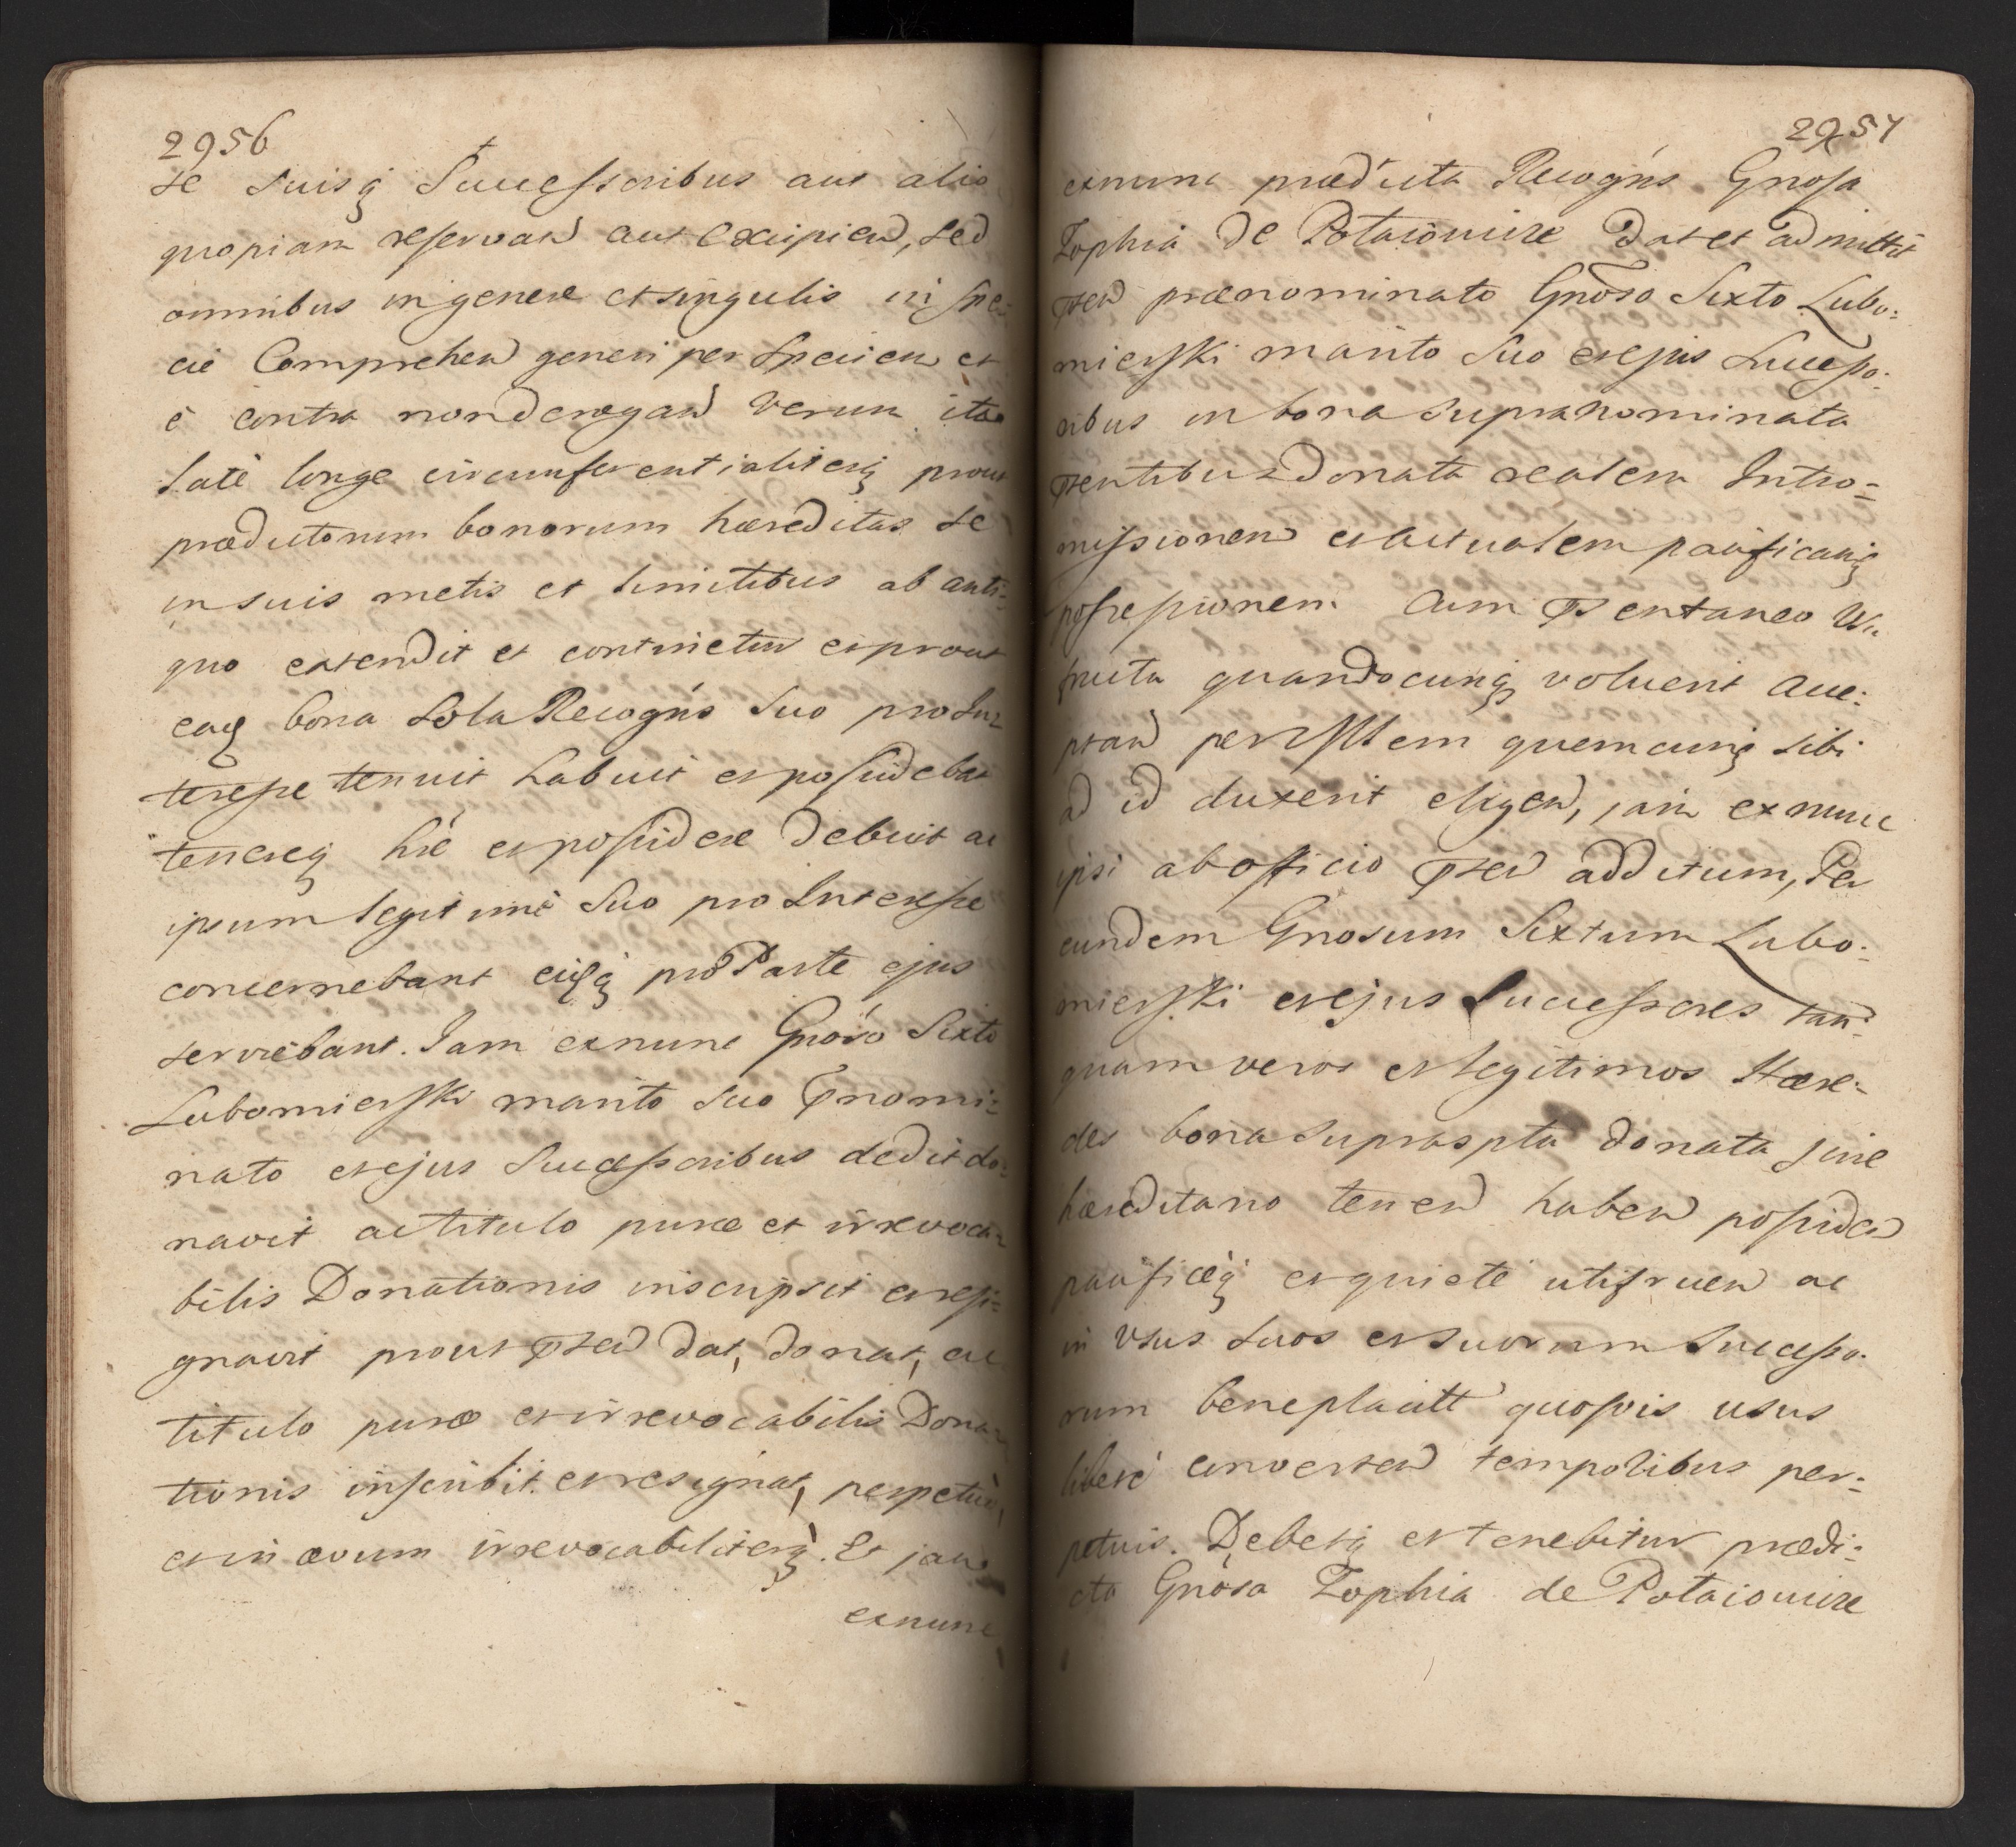 2956
se suisq Successoribus aut alio
quopiam reservan aut excipien, sed
omnibus in genere et singulis in spe:
cie Comprehen generi per Speciem et
è contra non derogan Verum ita
latè longe circumferentialiterq prout
prædictorum bonorum hæreditas se
in suis metis et limitibus ab anti:
quo extendit et continetur et prout
eaq bona Sola Recogñs Suo pro In:
teresse tenuit habuit et possidebat
tenereq hrẽ et possidere debuit ac
ipsum legitimè Suo pro Interesse
concernebant eiq pro Parte ejus
serviebant. Iam exnunc Gnoso Sixto
Lubomierski marito suo prnomi:
nato et ejus Successoribus dedit do:
navit ac titulo puræ et irrevoca:
bilis Donationis inscripsit et resi:
gnavit prout prsen dat, donat, ac
titulo puræ et irrevocabilis Dona:
tionis inscribit et resignat, perpetuò,
et in ævum irrevocabiliterq. Et jam
exnunc
2957
exnunc prædicta Recogñs Gnosa
Zophia de Potaiowice Dat et admittit
prsen prænominato Gnoso Sixto Lubo:
mierski marito Suo et ejus Successo:
ribus in bona supra nominata
prsentibus donata realem Intro:
missionem et actualem pacificamq
possessionem Cum prsentaneo Usu
fructu quandocunq voluerit acce:
ptan per Mtlem quemcunq sibi
ad id duxerit eligen, jam ex nunc
ipsi ab officio prsen additum, Per
eundem Gnosum Sixtum Lubo:
mierski et ejus Successores tan:
quam veros et legitimos Hære:
des bona suprasptu donata jure
hæreditario tenen haben possiden
pacificèq et quietè utifruen ac
in Usus Suos et suorum Successo:
rum beneplacitt quosvis usus
liberè converten temporibus per:
petuis. Debetq et tenebitur prædi:
cta Gnosa Zophia de Potaiowice